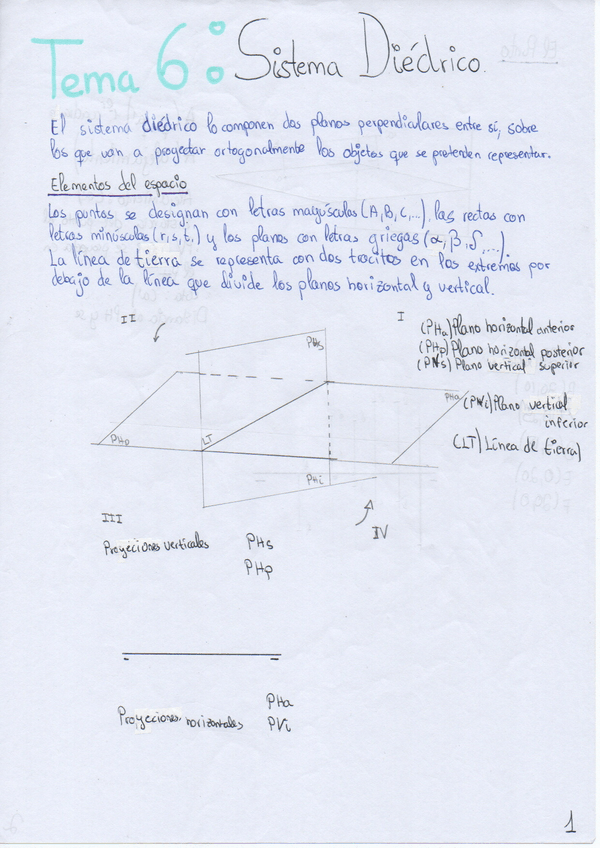 Tema 6: Sistema Diédrico.
El sistema diédrico lo componen dos planos perpendiculares entre sí, sobre
los que van a proyectar ortogonalmente los objetos que se pretenden representar.
Elementos del espacio
Los puntos se designan con letras mayúsculas (A, B, C,...), las rectas con
letras minúsculas (r, s, t,) y los planos con letras griegas (α, β, δ,...)
La línea de tierra se representa con dos trocitos en los extremos por
debajo de la línea que divide los planos horizontal y vertical.
II
I
(PHa) Plano horizontal anterior
(PHp) Plano horizontal posterior
(PVs) Plano vertical superior
PHs
PHa
(PVi) Plano vertical
inferior
PHp
LT
(LT) Línea de tierra
PHi
III
IV
Proyecciones verticales
PHs
PHp
PHa
Proyecciones horizontales
PVi
1